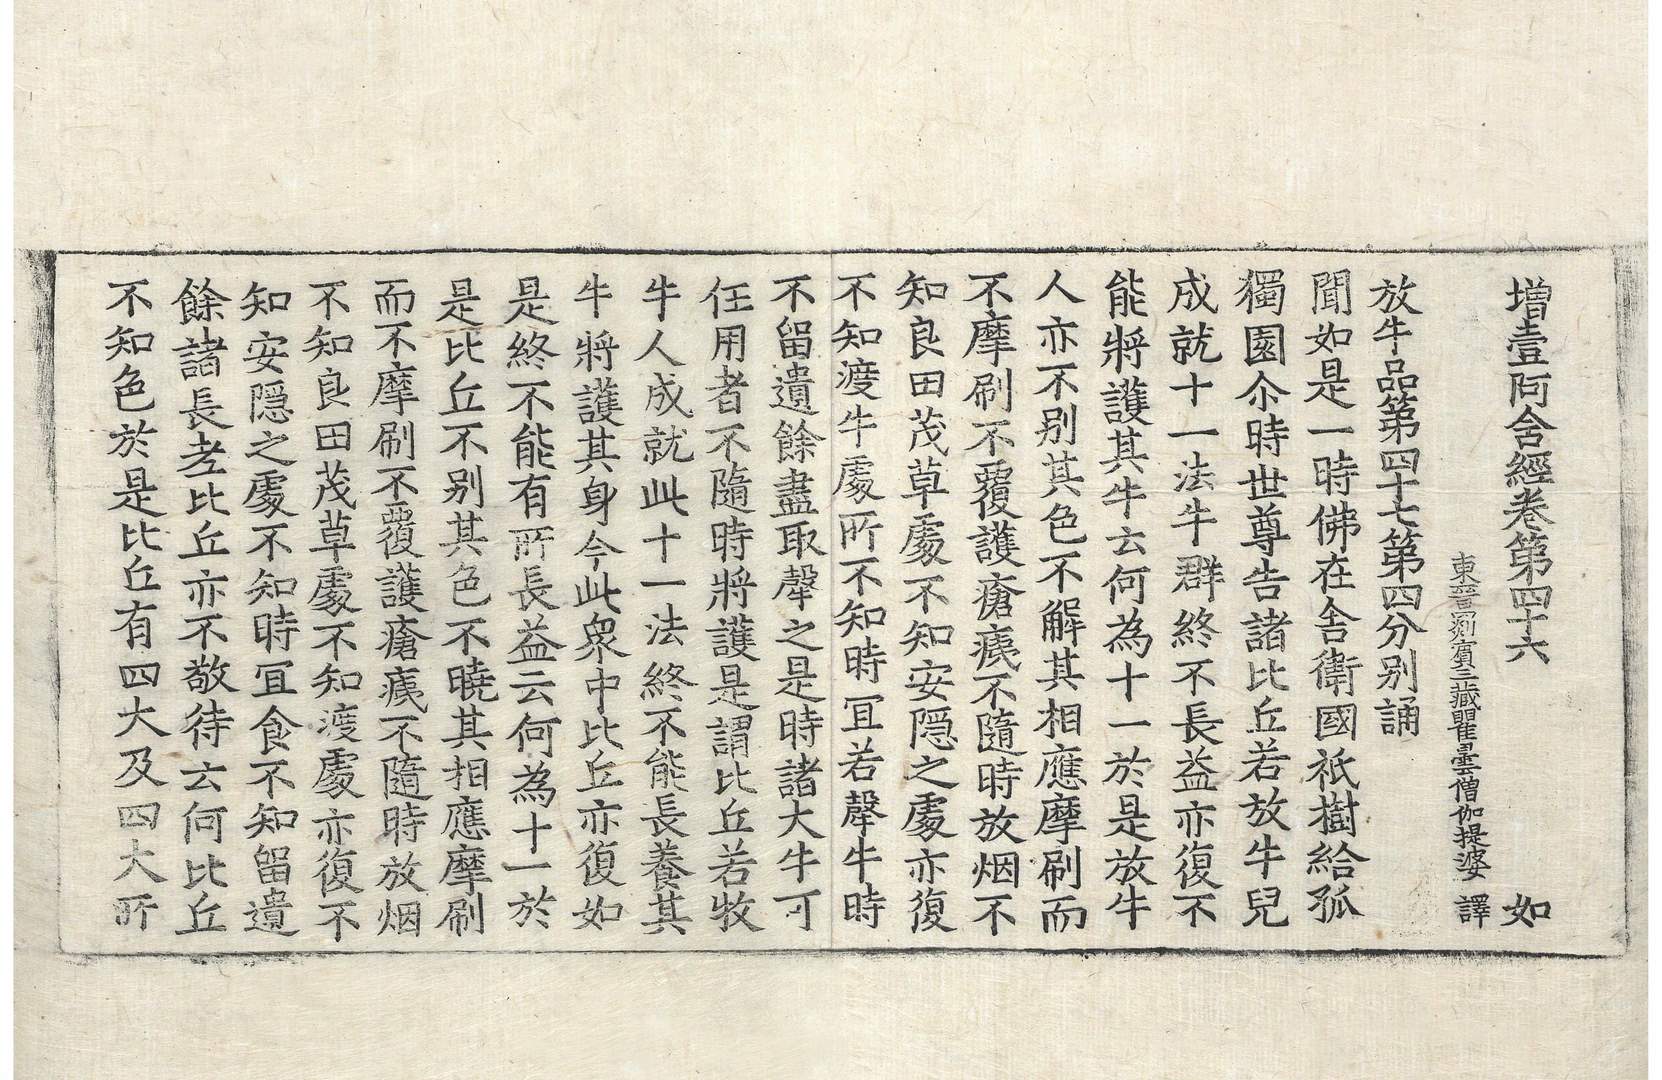 增壹阿含經卷第四十六　如
東晉罽賓三藏瞿曇僧伽提婆　譯
放牛品第四十七第四分别誦
聞如是一時佛在舍衛國祇樹給孤
獨園尒時世尊告諸比丘若放牛兒
成就十一法牛群終不長益亦復不
能將護其牛云何為十一於是放牛
人亦不别其色不解其相應摩刷而
不摩刷不覆護瘡痍不隨時放烟不
知良田茂草處不知安隱之處亦復
不知渡牛處所不知時冝若犛牛時
不留遺餘盡取犛之是時諸大牛可
任用者不隨時將護是謂比丘若牧
牛人成就此十一法終不能長養其
牛將護其身今此衆中比丘亦復如
是終不能有所長益云何為十一於
是比丘不别其色不曉其相應摩刷
而不摩刷不覆護瘡痍不隨時放烟
不知良田茂草處不知渡處亦復不
知安隱之處不知時冝食不知留遺
餘諸長老比丘亦不敬待云何比丘
不知色於是比丘有四大及四大所